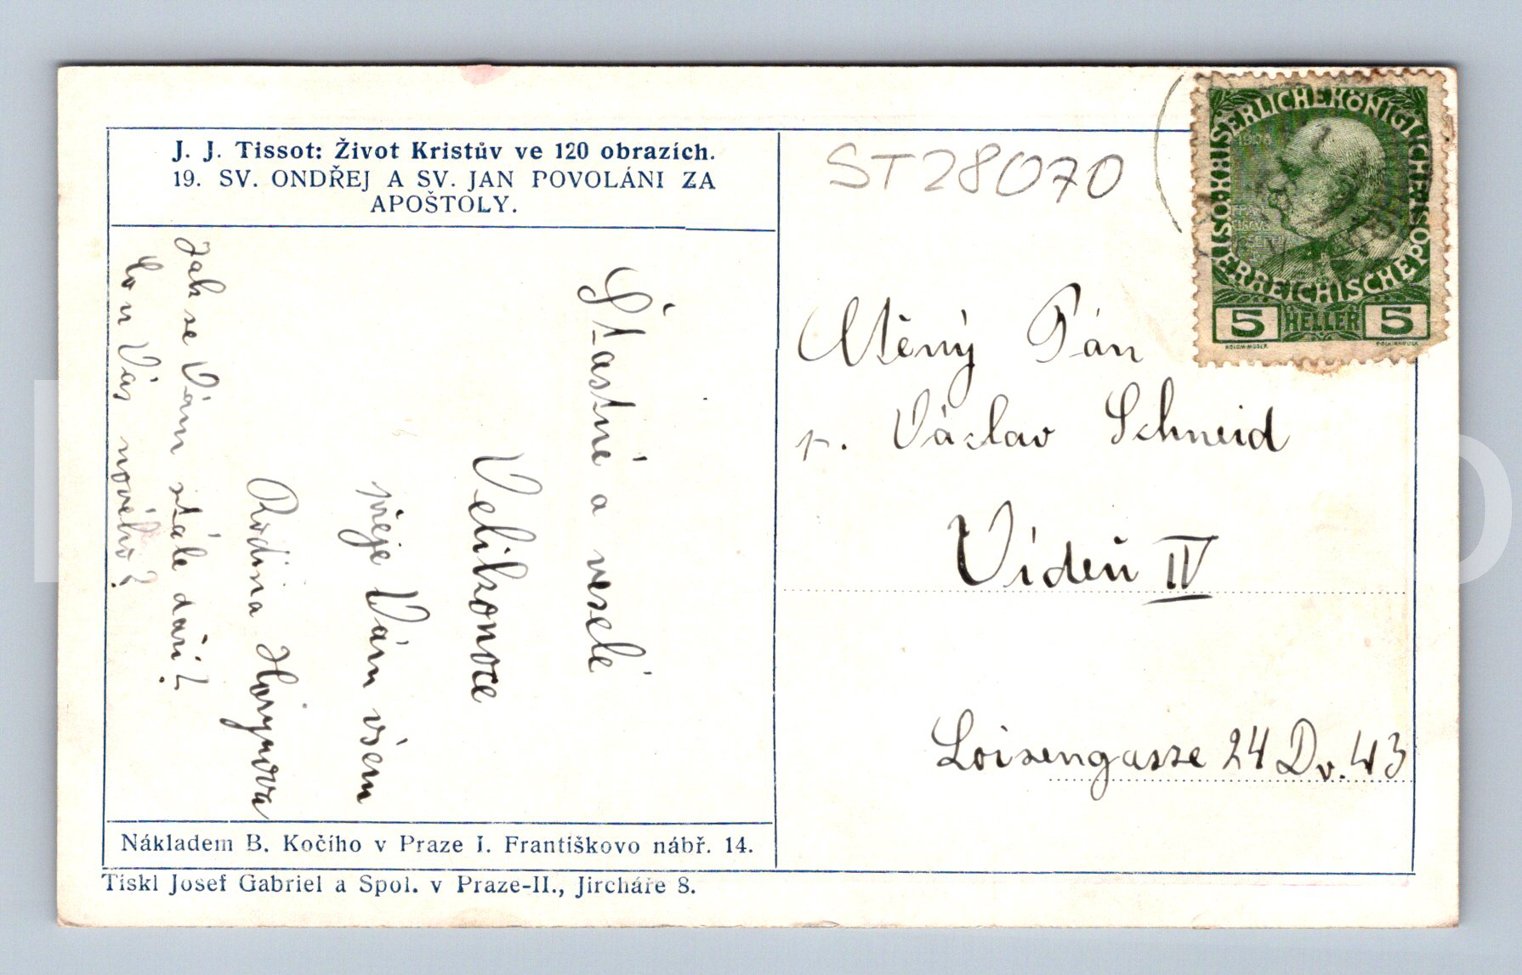 J. J. Tissot: Život Kristův ve 120 obrazích.
19. SV. ONDŘEJ A SV. JAN POVOLÁNI ZA
APOŠTOLY.
Šťastné a veselé
Velikonoce
přeje Vám všem
Rodina
Jak se Vám stále daří?
Co u Vás nového?
Nákladem B. Kočího v Praze I. Františkovo nábř. 14.
Tiskl Josef Gabriel a Spol. v Praze-II., Jircháře 8.
ST28070
KAISERLICHEKÖNIGLICHE
ÖSTERREICHISCHEPOST
5 HELLER 5
Ctěný Pán
p. Václav Schneid
Vídeň IV
Loisengasse 24 Dv. 43